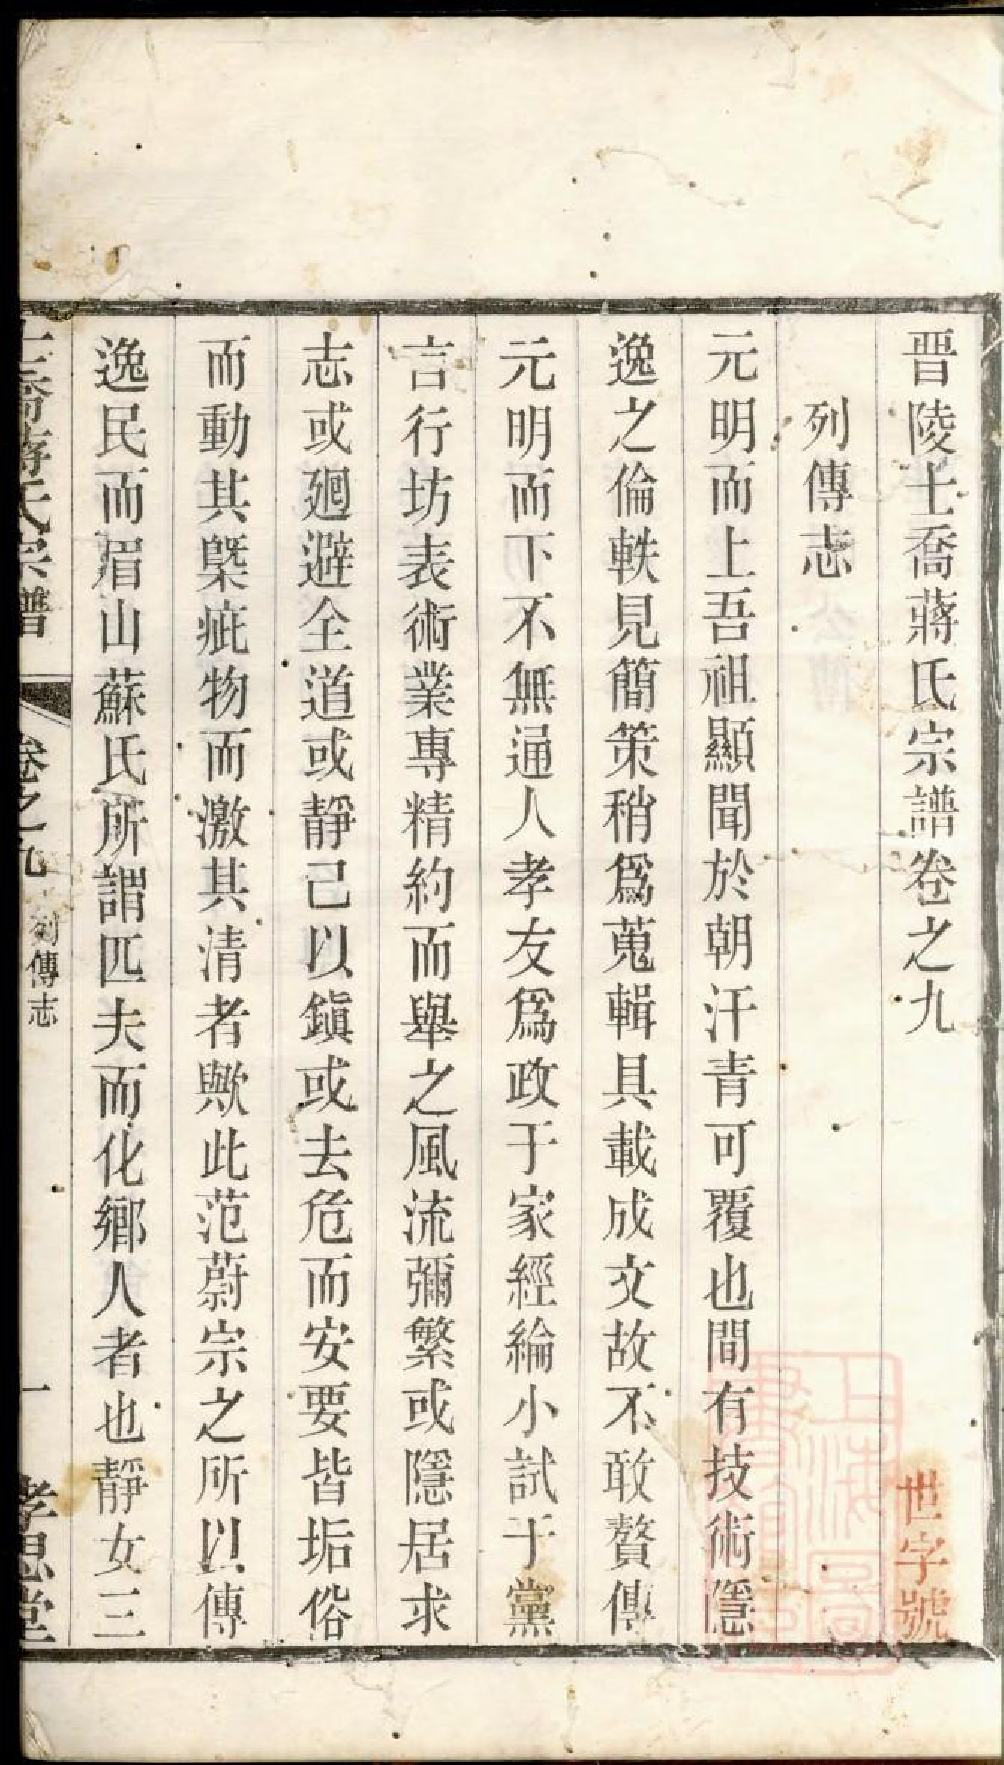 晋陵土喬蔣氏宗譜卷之九
世字號
列傳志
元明而上吾祖顯聞於朝汗青可覆也間有技術隱
逸之倫軼見簡策稍爲蒐輯具載成文故不敢贅傳
元明而下不無通人孝友爲政于家經綸小試于黨
言行坊表術業專精約而舉之風流彌繁或隱居求
志或廻避全道或靜己以鎭或去危而安要皆垢俗
而動其槩疵物而激其清者歟此范蔚宗之所以傳
逸民而眉山蘇氏所謂匹夫而化鄉人者也靜女三
土喬蔣氏宗譜 卷之九 列傳志 一 孝思堂
上海圖書館藏